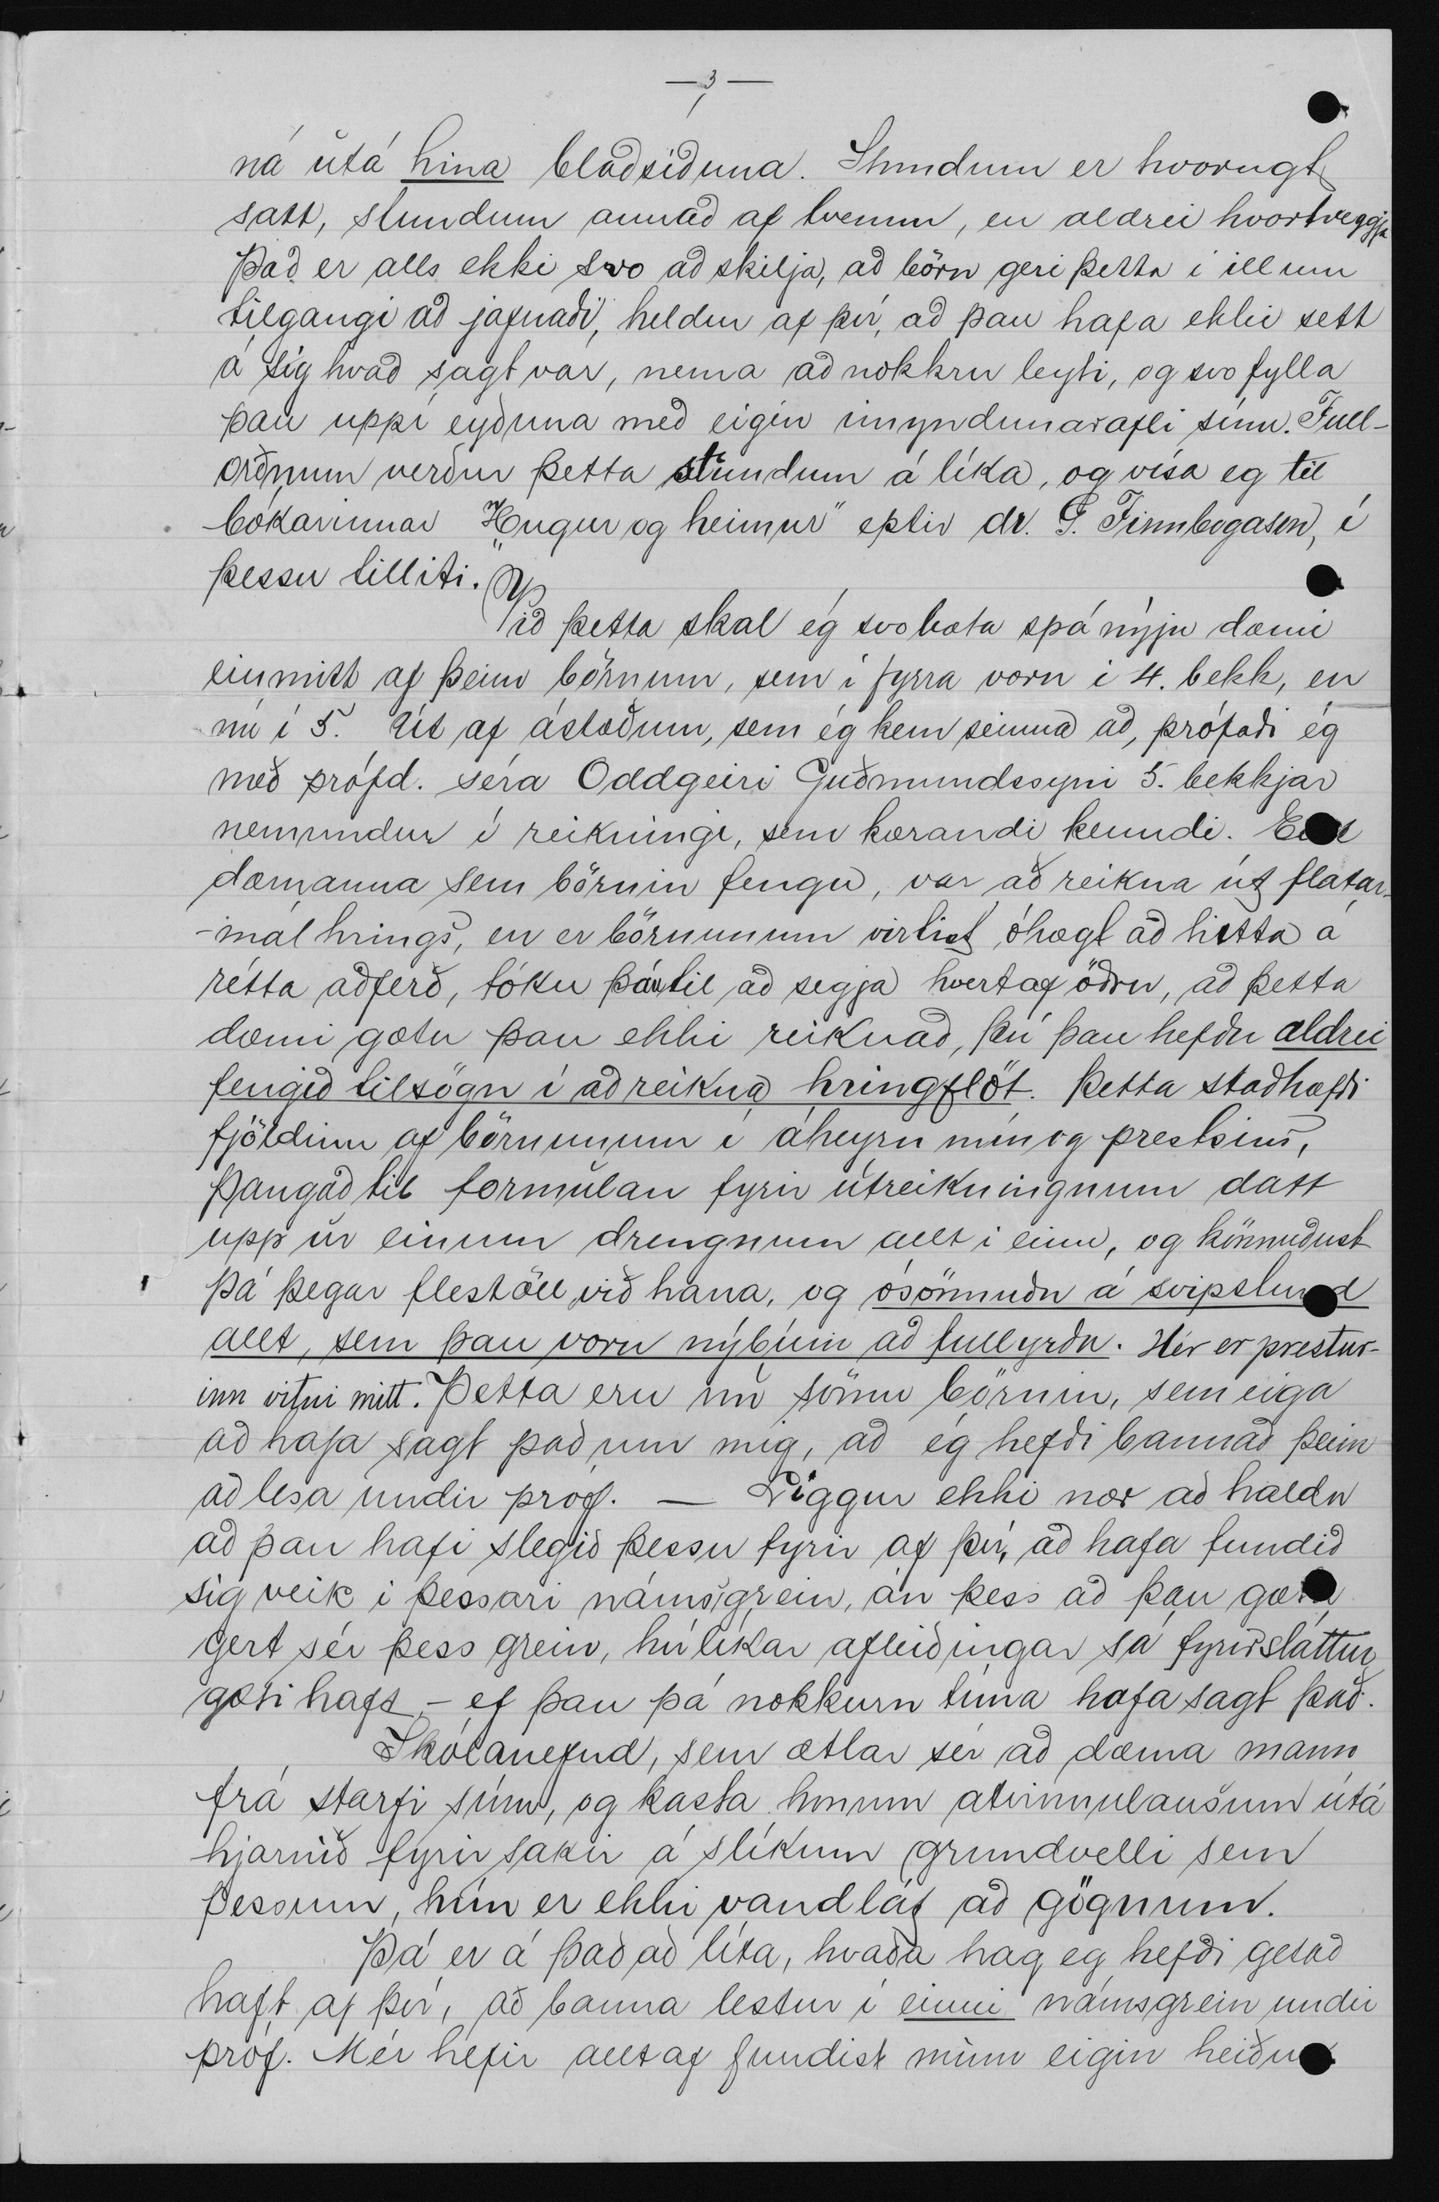 — 3 —
ná útá hina blaðsíðuna. Stundum er hvorugt
satt, stundum annað af tvennu, en aldrei hvortveggja
Það er alls ekki svo að skilja, að börn geri þetta í illum
tilgangi að jafnaði, heldur af því, að þau hafa ekki sett
á sig hvað sagt var, nema að nokkru leyti, og svo fylla
þau uppí eyðuna með eigin ímyndunarafli sínu. Full-
orðnum verður þetta stundum á líka, og vísa eg til
bókarinnar „Hugur og heimur" eptir dr. G. Finnbogason, í
þessu tilliti.
Við þetta skal ég svo bæta spánýju dæmi
einmitt af þeim börnum, sem í fyrra voru í 4. bekk, en
nú í 5. Út af ástæðum, sem ég kem seinna að, prófaði ég
með prófd. séra Oddgeiri Guðmundssyni 5. bekkjar
nemendur í reikningi, sem kærandi kenndi. Eitt
dæmanna sem börnin fengu, var að reikna út flatar-
-mál hrings, en er börnunum virtist óhægt að hitta á
rétta aðferð, tóku þau til að segja hvert af öðru, að þetta
dæmi gætu þau ekki reiknað, því þau hefðu aldrei
fengið tilsögn í að reikna hringflöt. Þetta staðhæfði
fjöldinn af börnunum í áheyrn mín og prestsins,
þangað til formúlan fyrir útreikningnum datt
upp úr einum drengnum allt í einu, og könnuðust
þá þegar flestöll við hana, og ósönnuðu á svipstund
allt, sem þau voru nýbúin að fullyrða. Hér er prestur-
inn vitni mitt. Þetta eru nú sömu börnin, sem eiga
að hafa sagt það um mig, að ég hefði bannað þeim
að lesa undir próf. — Liggur ekki nær að halda
að þau hafi slegið þessu fyrir af því, að hafa fundið
sig veik í þessari námsgrein, án þess að þau gæti
gert sér þess grein, hvílíkar afleiðingar sá fyrirsláttur
gæti haft – ef þau þá nokkurn tíma hafa sagt það.
Skólanefnd, sem ætlar sér að dæma mann
frá starfi sínu, og kasta honum atvinnulausum útá
hjarnið fyrir sakir á slíkum grundvelli sem
þessum, hún er ekki vandlát að gögnum.
Þá er á það að líta, hvaða hag eg hefði getað
haft af því, að banna lestur í einni námsgrein undir
próf. Mér hefir allt af fundist minn eigin heiður